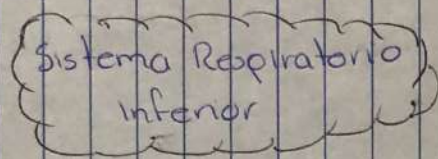 Sistema Respiratorio
inferior